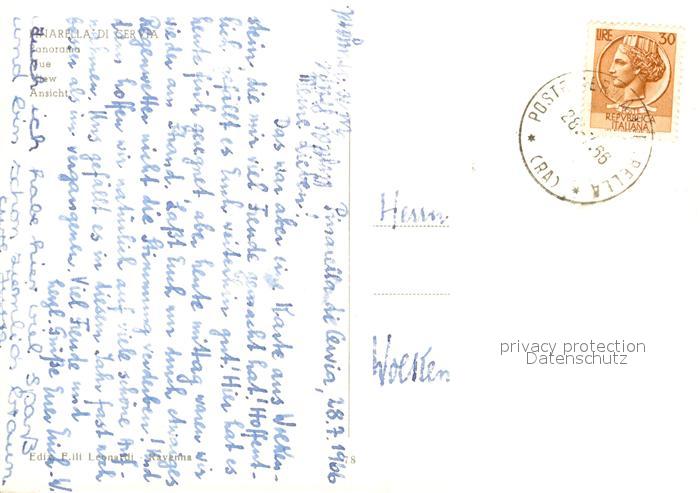 PINARELLA DI CERVIA
Panorama
Vue
View
Ansicht
Pinarella di Cervia, 28.7.1966
Meine Lieben!
Das war aber eine Karte aus Wolken-
stein, die mir viel Freude gemacht hat! Hoffent-
lich gefällt es Euch weiterhin gut! Hier hat es
heute früh geregnet aber heute mittag waren wir
wieder am Strand. Laßt Euch nur durch etwaiges
Regenwetter nicht die Stimmung verderben! Und
dann hoffen wir natürlich auf viele schöne Auf-
nahmen. Uns gefällt es in diesem Jahr fast noch
besser als im vergangenen. Viel Freude und
herzl. Grüße Euer
auch ich habe hier viel Spaß
und bin schon ziemlich braun.
Ediz. F.lli Leonardi - Ravenna
78
LIRE 30
REPUBBLICA
ITALIANA
POSTE
28.7.66
RELLA
(RA)
Herrn
Wolken
privacy protection
Datenschutz